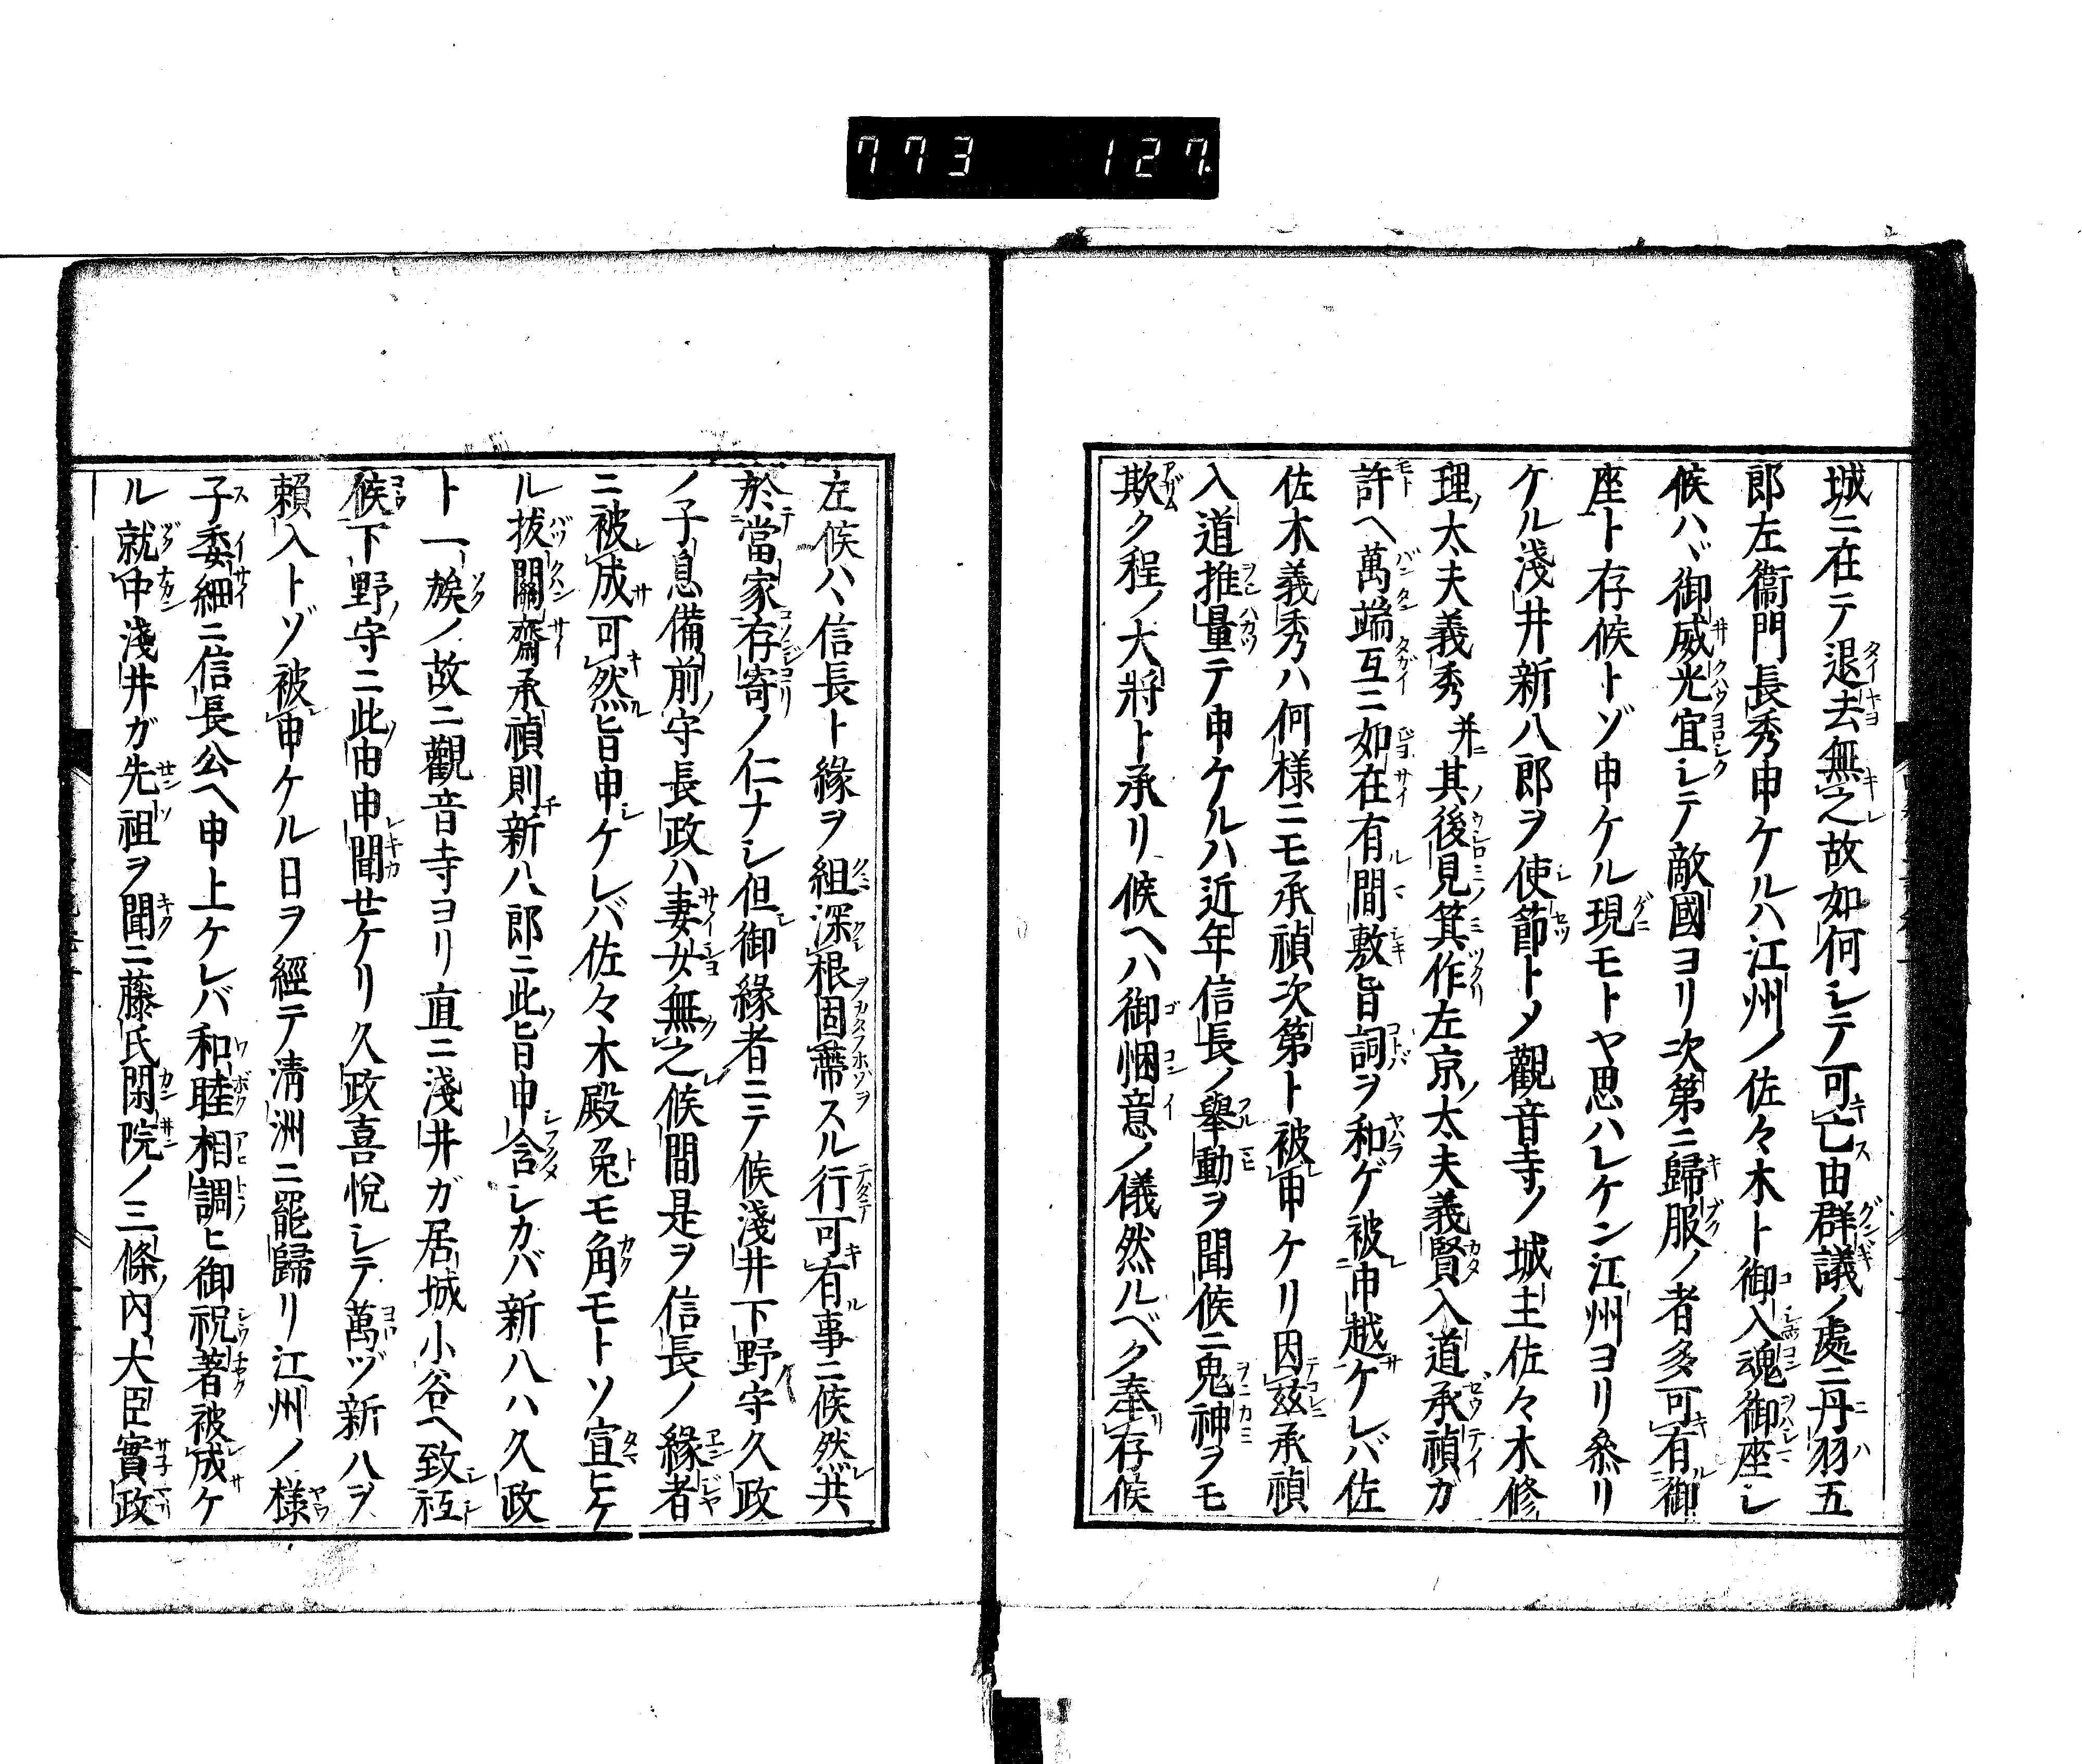 773 127
城ニ在テ退去無之故如何シテ可亡由群議ノ處ニ丹羽五
郎左衞門長秀申ケルハ江州ノ佐々木ト御入魂御座シ
候ハヾ御威光宜シテ敵國ヨリ次第ニ歸服ノ者多可有御
座ト存候トゾ申ケル現モトヤ思ハレケン江州ヨリ參リ
ケル淺井新八郎ヲ使節トメ觀音寺ノ城主佐々木修
理太夫義秀并其後見箕作左京太夫義賢入道承禎ガ
許ヘ萬端互ニ如在有間敷旨詞ヲ和ゲ被申越ケレバ佐
佐木義秀ハ何樣ニモ承禎次第ト被申ケリ因茲承禎
入道推量テ申ケルハ近年信長ノ擧動ヲ聞候ニ鬼神ヲモ
欺ク程ノ大將ト承リ候ヘハ御悃意ノ儀然ルベク奉存候
左候ハヽ信長ト緣ヲ組深根固蔕スル行可有事ニ候然共
於當家存寄ノ仁ナシ但御緣者ニテ候淺井下野守久政
ノ子息備前守長政ハ妻女無之候間是ヲ信長ノ緣者
ニ被成可然旨申ケレバ佐々木殿兔モ角モトソ宣ヒケ
ル拔關齋承禎則新八郎ニ此旨申含シカバ新八ハ久政
ト一族ノ故ニ觀音寺ヨリ直ニ淺井ガ居城小谷ヘ致祗
候下野守ニ此由申聞セケリ久政喜悅シテ萬ヅ新八ヲ
賴入トゾ被申ケル日ヲ經テ淸洲ニ罷歸リ江州ノ樣
子委細ニ信長公ヘ申上ケレバ和睦相調ヒ御祝著被成ケ
ル就中淺井ガ先祖ヲ聞ニ藤氏閑院ノ三條內大臣實政